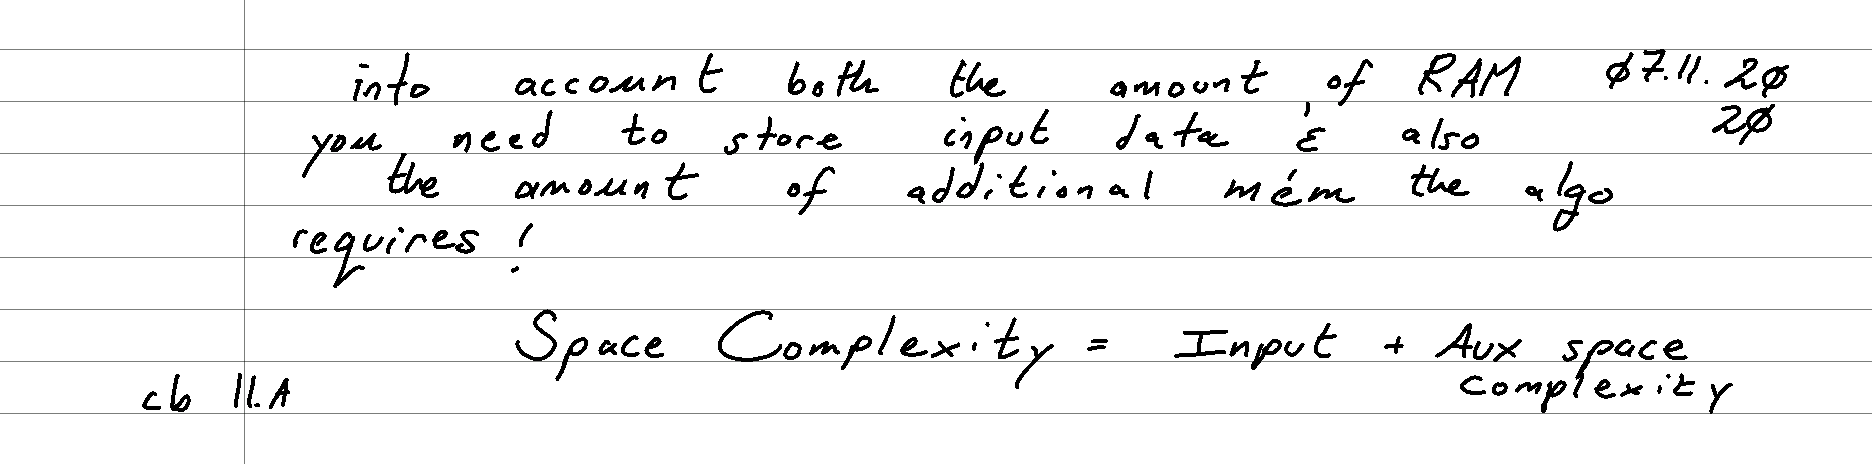 into account both the amount of RAM ø7.11.2ø
2ø
you need to store input data & also
the amount of additional mem the algo
requires!
Space Complexity = Input + Aux space
complexity
cb 11.A